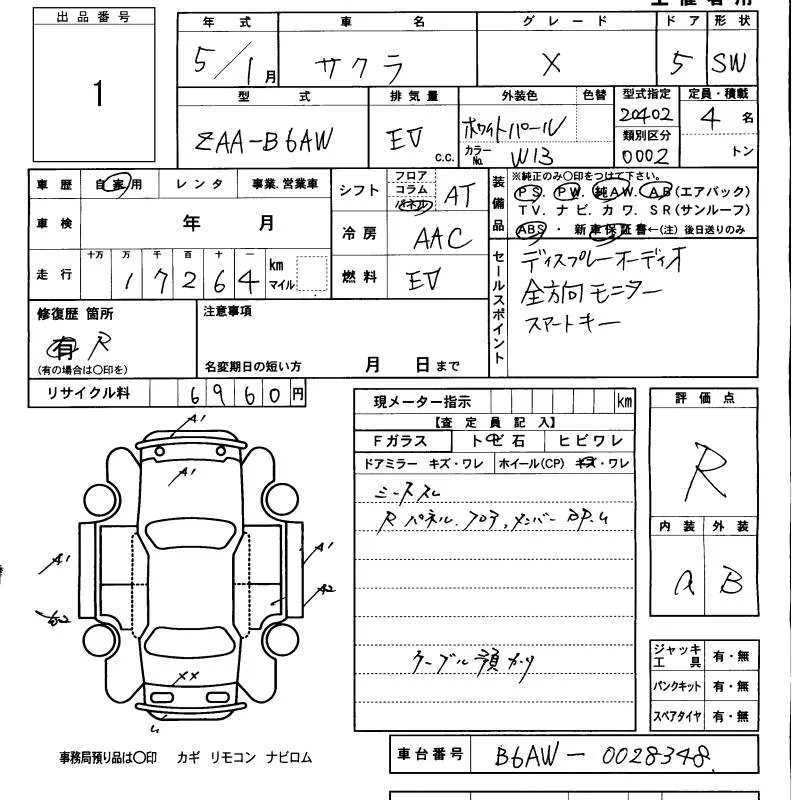 出品番号
1
年式 車名 グレード ドア 形状
5/1月 サクラ X 5 SW
型式 排気量 外装色 色替 型式指定 定員・積載
ZAA-B6AW EV c.c. ホワイトパール 20402 4名
カラーNo. W13 類別区分 0002 トン
車歴 自家用 レンタ 事業.営業車
シフト フロア コラム パネル AT
装備品 ※純正のみ○印をつけて下さい。
PS. PW. 純AW. AB(エアバック)
TV. ナビ. カワ. SR(サンルーフ)
ABS・新車保証書←(注)後日送りのみ
車検 年 月
冷房 AAC
走行 十万 万 千 百 十 一
17264 km マイル
燃料 EV
セールスポイント
ディスプレーオーディオ
全方向モニター
スマートキー
修復歴 箇所
有 R
(有の場合は○印を)
注意事項
名変期日の短い方 月 日まで
リサイクル料 6960円
現メーター指示 km
【査定員記入】
Fガラス トビ石 ヒビワレ
ドアミラー キズ・ワレ ホイール(CP) キズ・ワレ
シースレ
Rパネル.フロア,メンバー
ケーブル預かり
評価点
R
内装 外装
a B
A1
A1
A1
A1
A2
XX
ジャッキ工具 有・無
パンクキット 有・無
スペアタイヤ 有・無
事務局預り品は○印 カギ リモコン ナビロム
車台番号 B6AW-0028348